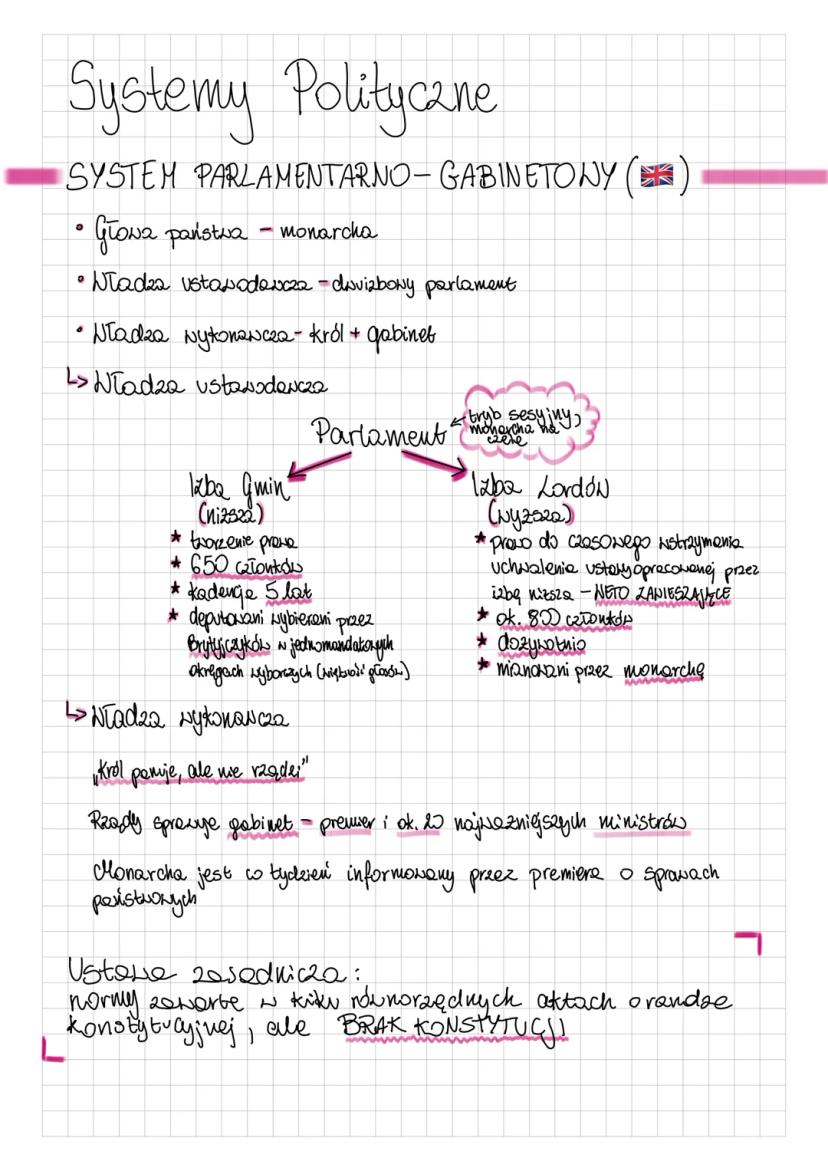 Systemy Polityczne
SYSTEM PARLAMENTARNO-GABINETOWY (🇬🇧)
• Głowa państwa - monarcha
• Władza ustawodawcza - dwuizbowy parlament
• Władza wykonawcza - król + gabinet
↳ Władza ustawodawcza
Parlament
tryb sesyjny,
monarcha na
czele
Izba Gmin
(niższa)
* tworzenie prawa
* 650 członków
* kadencja 5 lat
* deputowani wybierani przez
Brytyjczyków w jednomandatowych
okręgach wyborczych (większość głosów)
Izba Lordów
(wyższa)
* prawo do czasowego wstrzymania
uchwalenia ustawy opracowanej przez
izbę niższa - WETO ZAWIESZAJĄCE
* ok. 800 członków
* dożywotnio
* mianowani przez monarchę
↳ Władza wykonawcza
„Król panuje, ale nie rządzi"
Rządy sprawuje gabinet - premier i ok. 20 najważniejszych ministrów
Monarcha jest co tydzień informowany przez premiera o sprawach
państwowych
Ustawa zasadnicza:
normy zawarte w kilku równorzędnych aktach o randze
konstytucyjnej, ale BRAK KONSTYTUCJI